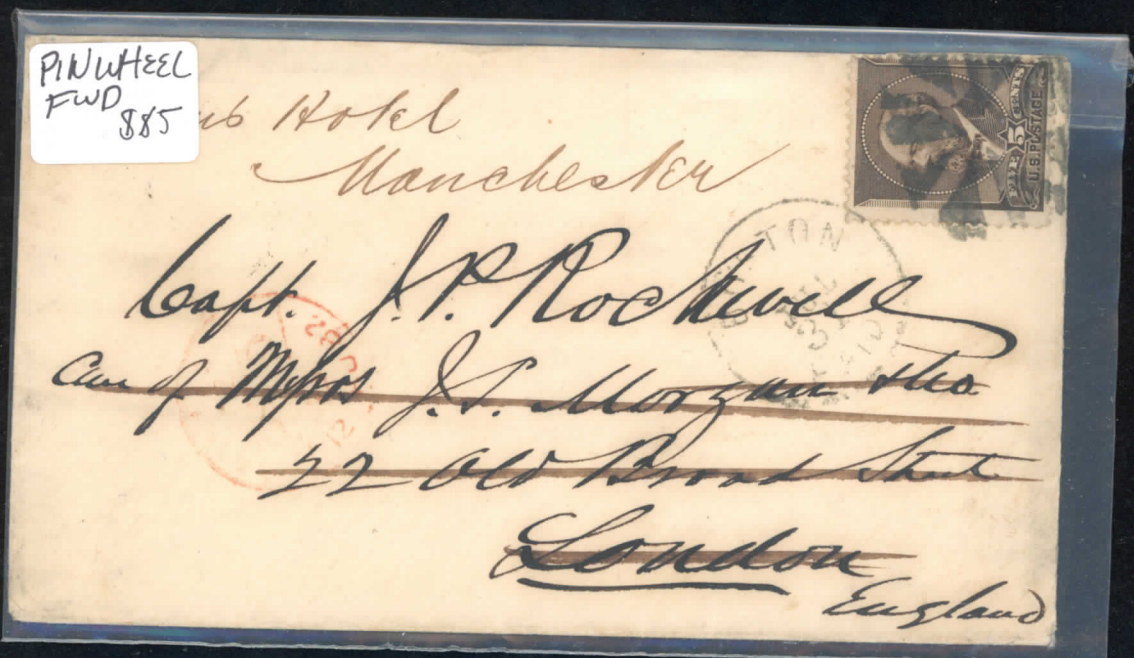 PINWHEEL
FWD
$85
Hotel
Manchester
FIVE 5 CENTS
U.S. POSTAGE.
TON
Capt. J. P. Rockwell
Care of Messrs J. S. Morgan & Co.
22 Old Broad Street
London
England